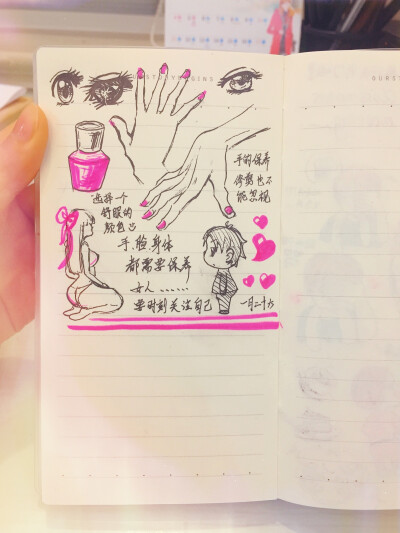 手的保养
修剪也不
能忽视
选择一个
舒服的
颜色
手、脸、身体
都需要保养
女人……
要时刻关注自己
一月二十六